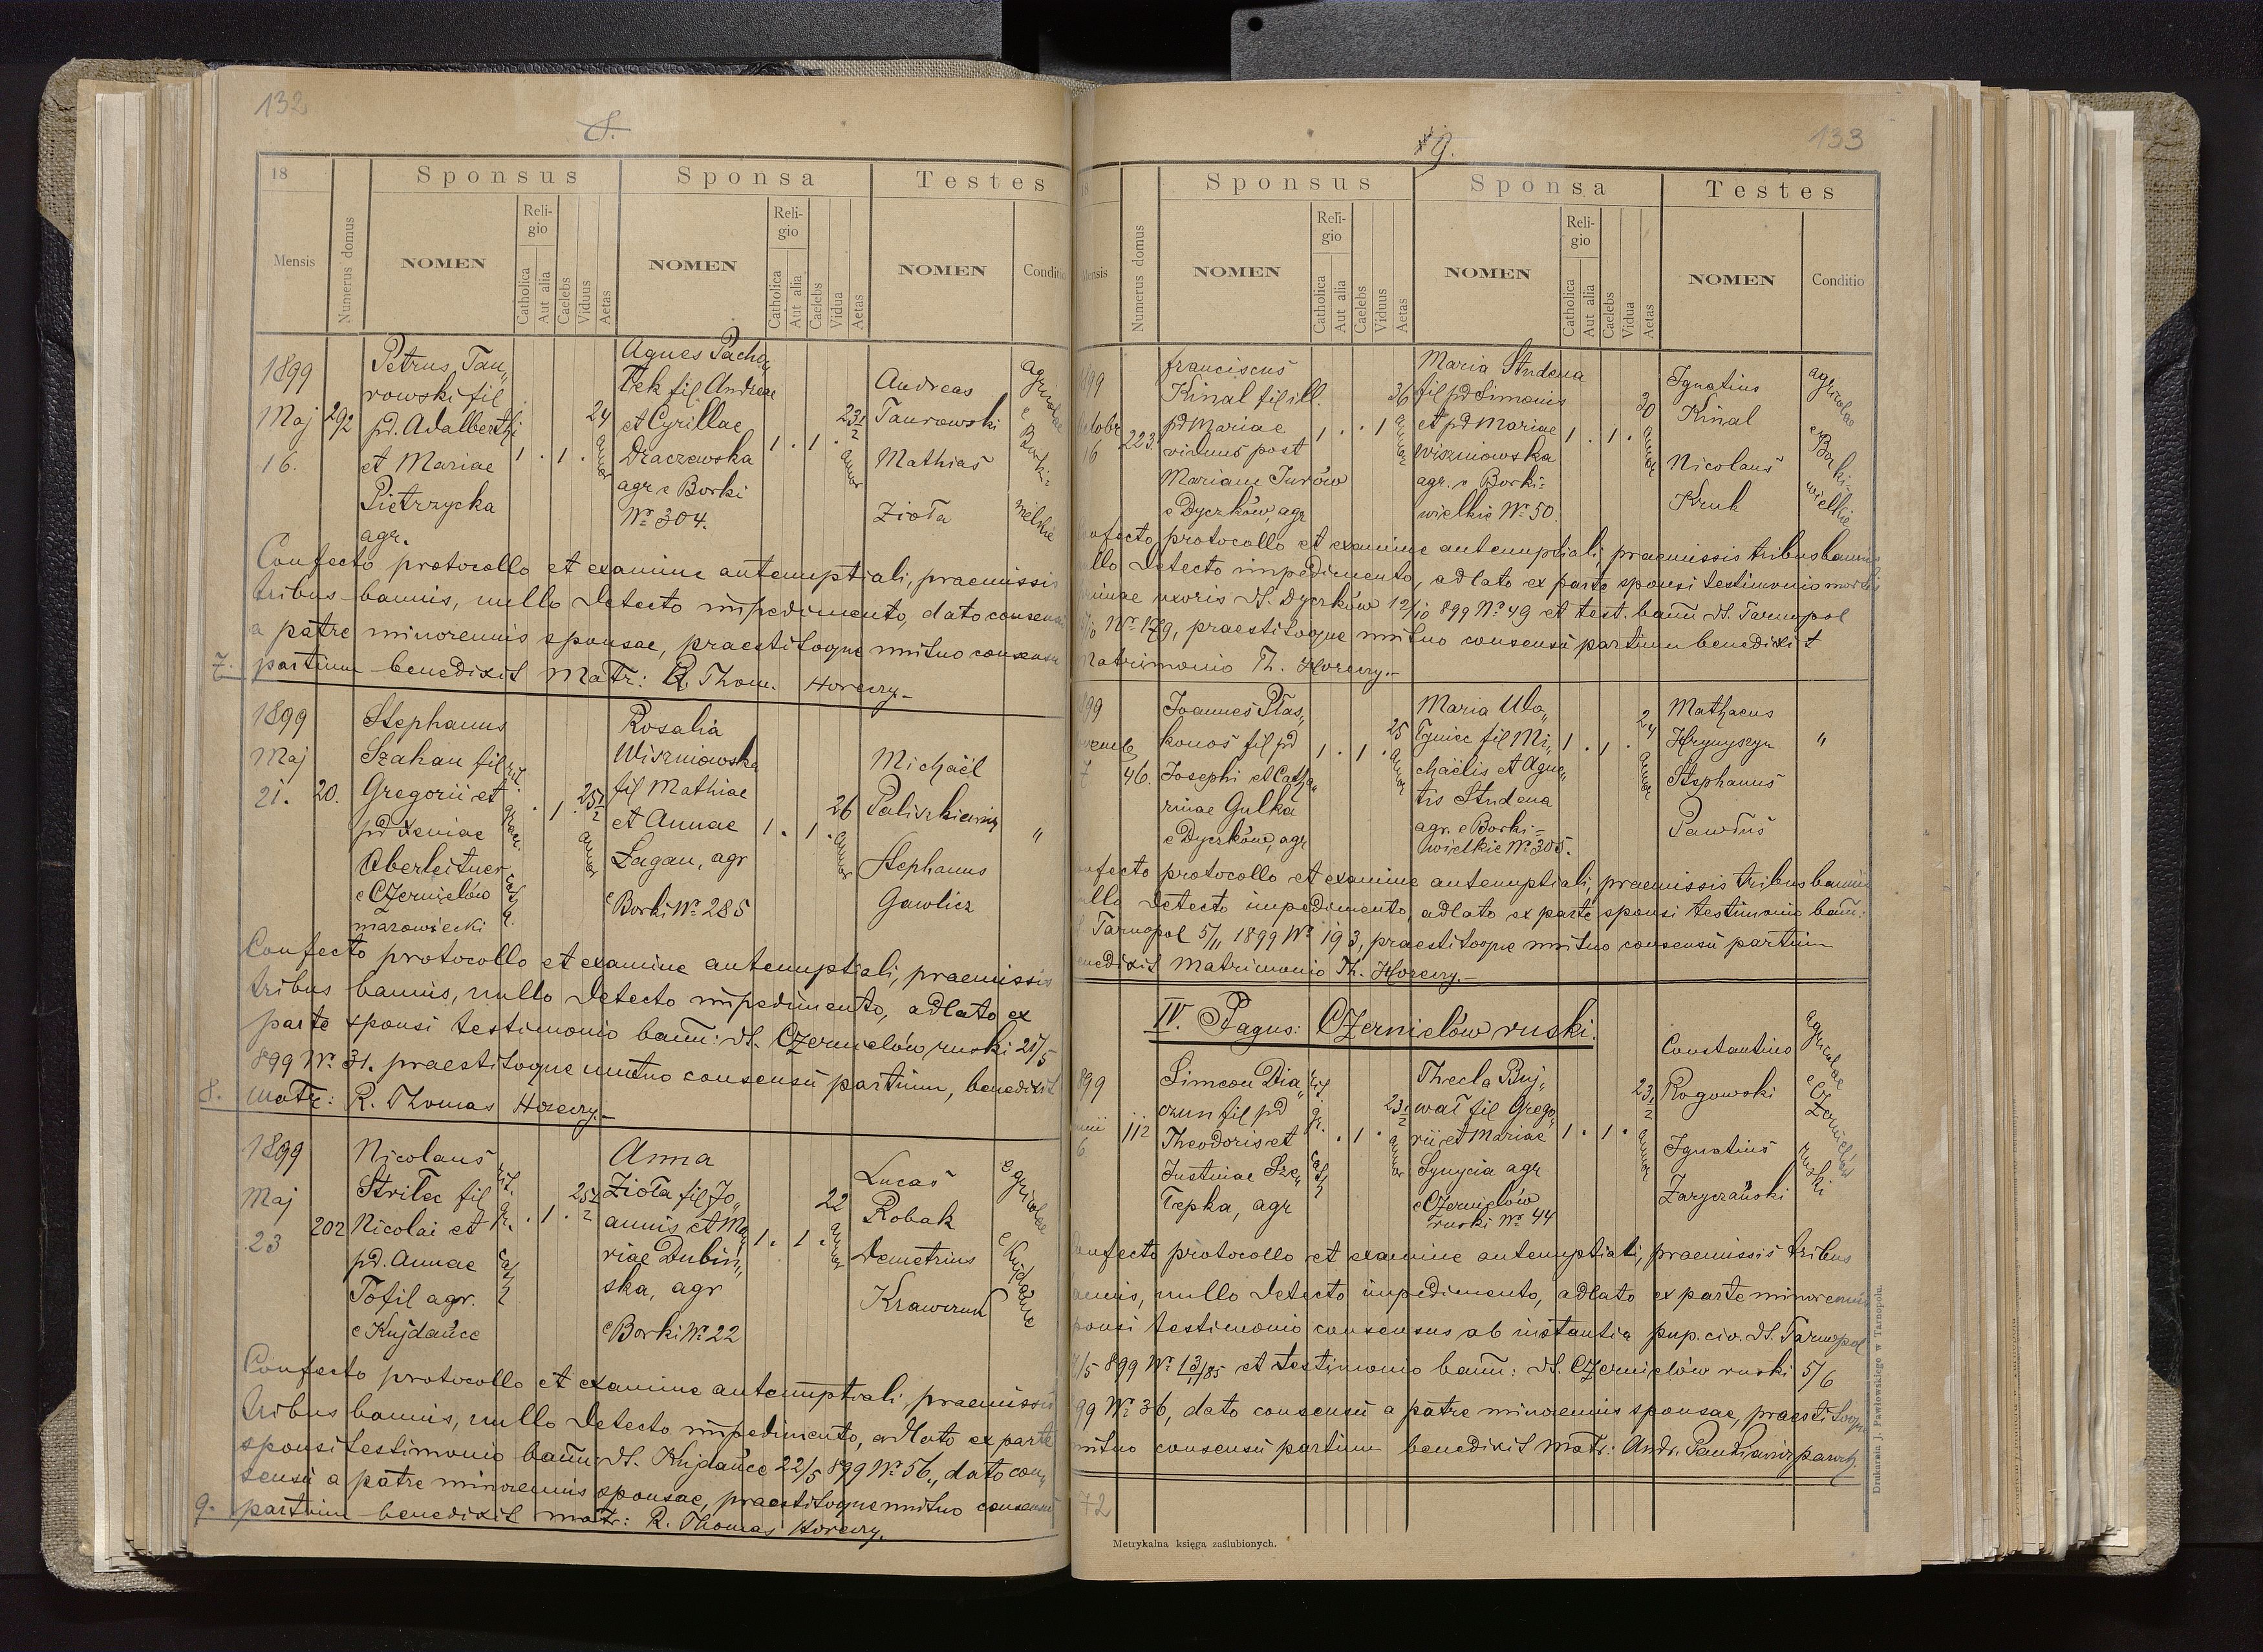 132
8.
18
Sponsus
Sponsa
Testes
Mensis
Numerus domus
NOMEN
Religio
Catholica
Aut alia
Caelebs
Viduus
Aetas
NOMEN
Religio
Catholica
Aut alia
Caelebs
Vidua
Aetas
NOMEN
Conditio
1899
Maj
16.
292
Petrus Tau„
rowski fil
pd. Adalberthi
et Mariae
Pietrzycka
agr.
1 . 1 .
24
annor
Agnes Pacho„
łek fil. Andreae
et Cyrillae
Draczewska
agr e Borki
Nº 304.
1 . 1 .
23 1/2
annor
Andreas
Taurowski
Mathias
Zioła
agricolae
e Borki=
wielkie
Confecto protocollo et examine antenuptiali, praemissis
tribus bannis, nullo detecto impedimento, dato consensu
a patre minorennis sponsae, praestitoque mutuo consensu
7. partium benedixit Matr: R. Thom. Horeczy.–
1899
Maj
21.
20.
Stephanus
Szahan fil
Gregorii et
pd Xeniae
Oberleitner
e Czernielów
mazowiecki
rit. graec. cath.
. 1 .
25 1/2
annor
Rosalia
Wiszniowska
fil Mathiae
et Annae
Łagan, agr
e Borki Nº 285
1 . 1 .
26
annor
Michaël
Paliszkiewicz
Stephanus
Gawlicz
"
Confecto protocollo et examine antenuptiali, praemissis
tribus bannis, nullo detecto impedimento, adlato ex
parte sponsi testimonio bann: dt. Czernielów ruski 21/5
899 Nº 31. praestitoque mutuo consensu partium, benedixit
8. matr: R. Thomas Horeczy.–
1899
Maj
23
202
Nicolaus
Striłec fil
Nicolai et
pd. Annae
Tofil agr.
e Kujdańce
rit. gr. cath
. 1 .
25 1/2
Anna
Zioła fil Jo„
annis et Ma„
riae Dubiń„
ska, agr
e Borki Nº 22
1 . 1 .
22
annor
Lucas
Robak
Demetrius
Krawczuk
agricolae
e Kujdańce
Confecto protocollo et examine antenuptiali, praemissis
tribus bannis, nullo detecto impedimento, adlato ex parte
sponsi testimonio bann: dt. Kujdańce 22/5 899 Nº 56„ dato con„
sensu a patre minorennis sponsae, praestitoque mutuo consensu
9. partium benedixit matr: R. Thomas Horeczy.
133
9.
18
Sponsus
Sponsa
Testes
Mensis
Numerus domus
NOMEN
Religio
Catholica
Aut alia
Caelebs
Viduus
Aetas
NOMEN
Religio
Catholica
Aut alia
Caelebs
Vidua
Aetas
NOMEN
Conditio
899
ctobr
16
223.
franciscus
Kinal fil ill.
pd Mariae
viduus post
Mariam Jurów
e Dyczków, agr
1 . . 1
36
annor
Maria Studena
fil pd Simonis
et pd Mariae
Wiszniowska
agr. e Borki=
wielkie Nº 50.
1 . 1 .
30
annor
Ignatius
Kinal
Nicolaus
Kruk
agricolae
e Borki=
wielkie
nfecto protocollo et examine antenuptiali, praemissis tribus bannis
llo detecto impedimento, adlato ex parte sponsi testimonio mortis
primae uxoris dt. Dyczków 12/10 899 Nº 49 et test. bann dt. Tarnopol
/10 Nº 179, praestitoque mutuo consensu partium benedixit
Matrimonio Th. Horeczy.–
899
ovemb
7
46.
Joannes Płas„
konos fil pd
Josephi et Catha„
rinae Gulka
e Dyczków, agr
1 . 1 .
25
annor
Maria Uło„
łyniec fil Mi„
chaëlis et Agne„
tis Studena
agr. e Borki=
wielkie Nº 305.
1 . 1 .
24
annor
Mathaeus
Hrynyszyn
Stephanus
Pawłus
"
nfecto protocollo et examine antenuptiali, praemissis tribus bannis
ullo detecto impedimento, adlato ex parte sponsi testimonio bann:
Tarnopol 5/11 1899 Nº 193, praestitoque mutuo consensu partium
enedixit matrimonio Th. Horeczy.–
IV. Pagus: Czernielów ruski.
899
unii
6
112
Simeon Dia„
czun fil pd
Theodoris et
Justinae Sze„
łepka, agr
rit gr. cath
. 1 .
23 1/2
annor
Thecla Buj„
wał fil Grego„
rii et Mariae
Synycia agr
e Czernielów
ruski Nº 44
1 . 1 .
23 1/2
annor
Constantino
Rogowski
Ignatius
Zaryczański
agricolae
e Czernielów
ruski
onfecto protocollo et examine antenuptiali, praemissis tribus
annis, nullo detecto impedimento, adlato ex parte minorennis
ponsi testimonio consensus ab instantia pup. civ. dt. Tarnopol
/5 899 Nº 13/85 et testimonio bann: dt. Czernielów ruski 5/6
99 Nº 36, dato consensu a patre minorennis sponsae, praestitoque
mutuo consensu partium benedixit matr: Andr. paroch.
72
Metrykalna księga zaślubionych.
Drukarnia J. Pawłowskiego w Tarnopolu.